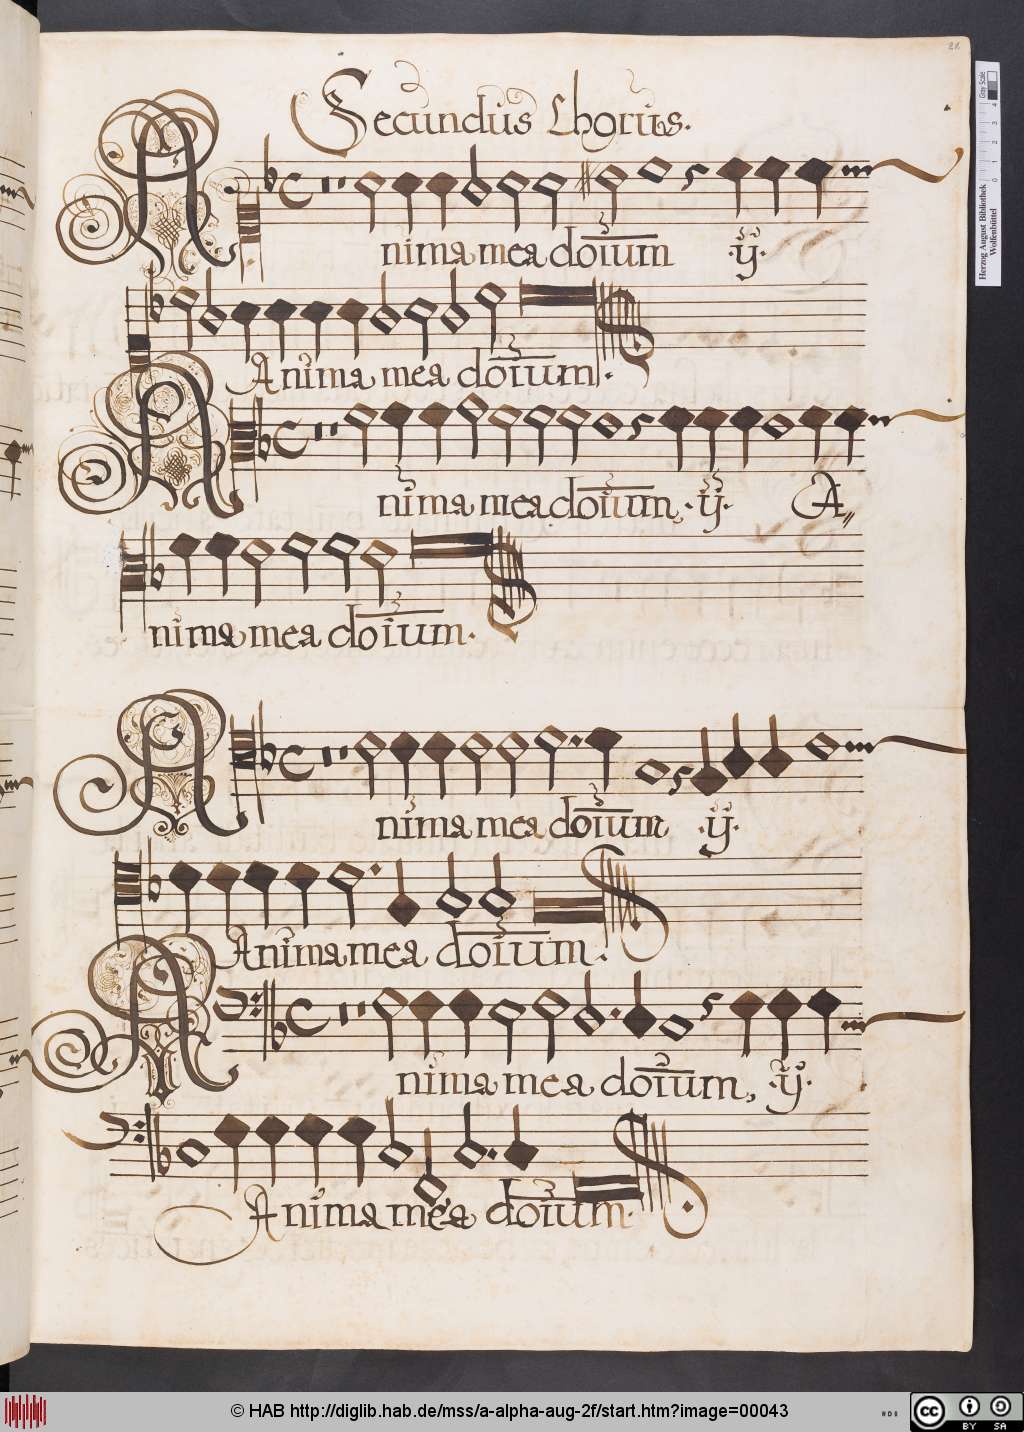 Secundus Chorus.
Anima mea doium ·ij·
Anima mea doium.
Anima mea doium, ·ij· A
nima mea doium.
Anima mea doium ·ij·
Anima mea doium.
Anima mea doium, ·ij·
Anima mea doium.
Gray Scale
0 1 2 3 4
Herzog August Bibliothek
Wolfenbüttel
© HAB http://diglib.hab.de/mss/a-alpha-aug-2f/start.htm?image=00043
cc BY SA